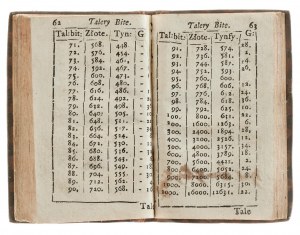 62 Talery Bite.
Tal:bit: Złote. Tynf: G
71. 568. 448.
72. 576. 454.
73. 584. 461.
74. 592. 467.
75. 600. 473.
76. 608. 480.
77. 616. 486.
78. 624. 492.
79. 632. 498.
80. 640. 505.
81. 648. 511.
82. 656. 517.
83. 664. 524.
84. 672. 530.
85. 680. 536.
86. 688. 543.
87. 696. 549.
88. 704. 555.
89. 712. 562.
90. 720. 568.
Ta
Talery Bite. 63
Tal:bit: Złote. Tynfy. G:
91. 728. 574. 28.
92. 736. 581.
93. 744. 587.
94. 752. 593.
95. 760. 600.
96. 768. 606.
97. 776. 612.
98. 784. 618.
99. 792. 625.
100. 800. 631.
200. 1600. 1263.
300. 2400. 1894.
400. 3200. 2526.
500. 4000. 3157.
600. 4800. 3789.
700. 5600. 4421.
800. 6400. 5052.
900. 7200. 5684.
1000. 8000. 6315.
2000. 16000. 12631.
Tale